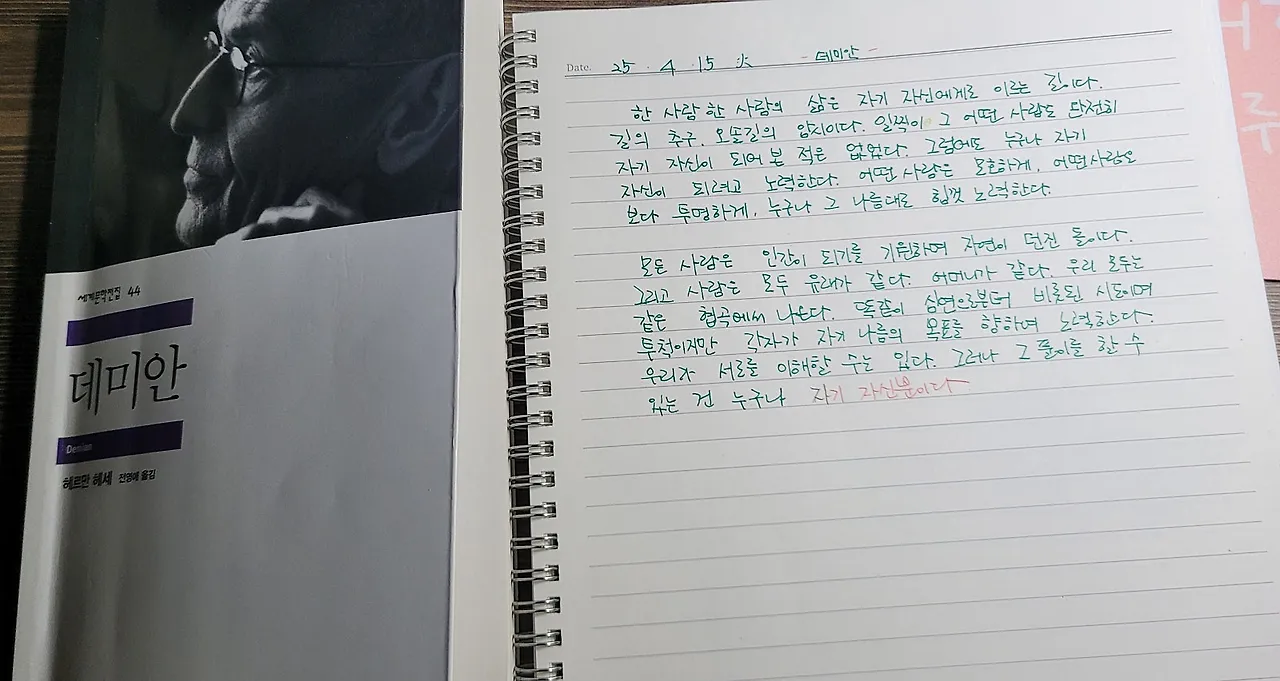 세계문학전집 44
데미안
Demian
헤르만 헤세 전영애 옮김
Date. 25 . 4 . 15 火 - 데미안 -
한 사람 한 사람의 삶은 자기 자신에게로 이르는 길이다.
길의 추구, 오솔길의 암시이다. 일찍이 그 어떤 사람도 완전히
자기 자신이 되어 본 적은 없었다. 그럼에도 누구나 자기
자신이 되려고 노력한다. 어떤 사람은 모호하게, 어떤 사람은
보다 투명하게, 누구나 그 나름대로 힘껏 노력한다.
모든 사람은 인간이 되기를 기원하며 자연이 던진 돌이다.
그리고 사람은 모두 유래가 같다. 어머니가 같다. 우리 모두는
같은 협곡에서 나온다. 똑같이 심연으로부터 비롯된 시도이며
투척이지만 각자가 자기 나름의 목표를 향하여 노력한다.
우리가 서로를 이해할 수는 있다. 그러나 그 풀이를 할 수
있는 건 누구나 자기 자신뿐이다